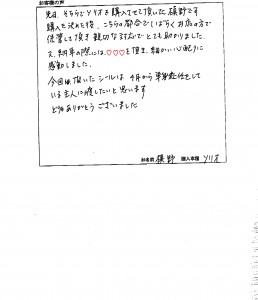 お客様の声
先日、そちらでソリオを購入させて頂いた磯野です
購入を決めた後、こちらの都合でしばらくお店の方で
保管して頂き親切な対応でとても助かりました。
又、納車の際には、♡♡♡を頂き、細かい心配りに
感動しました。
今回頂いたシールは 4月から単身赴任をして
いる主人に渡したいと思います
どうもありがとうございました
お名前 磯野 購入車種 ソリオ